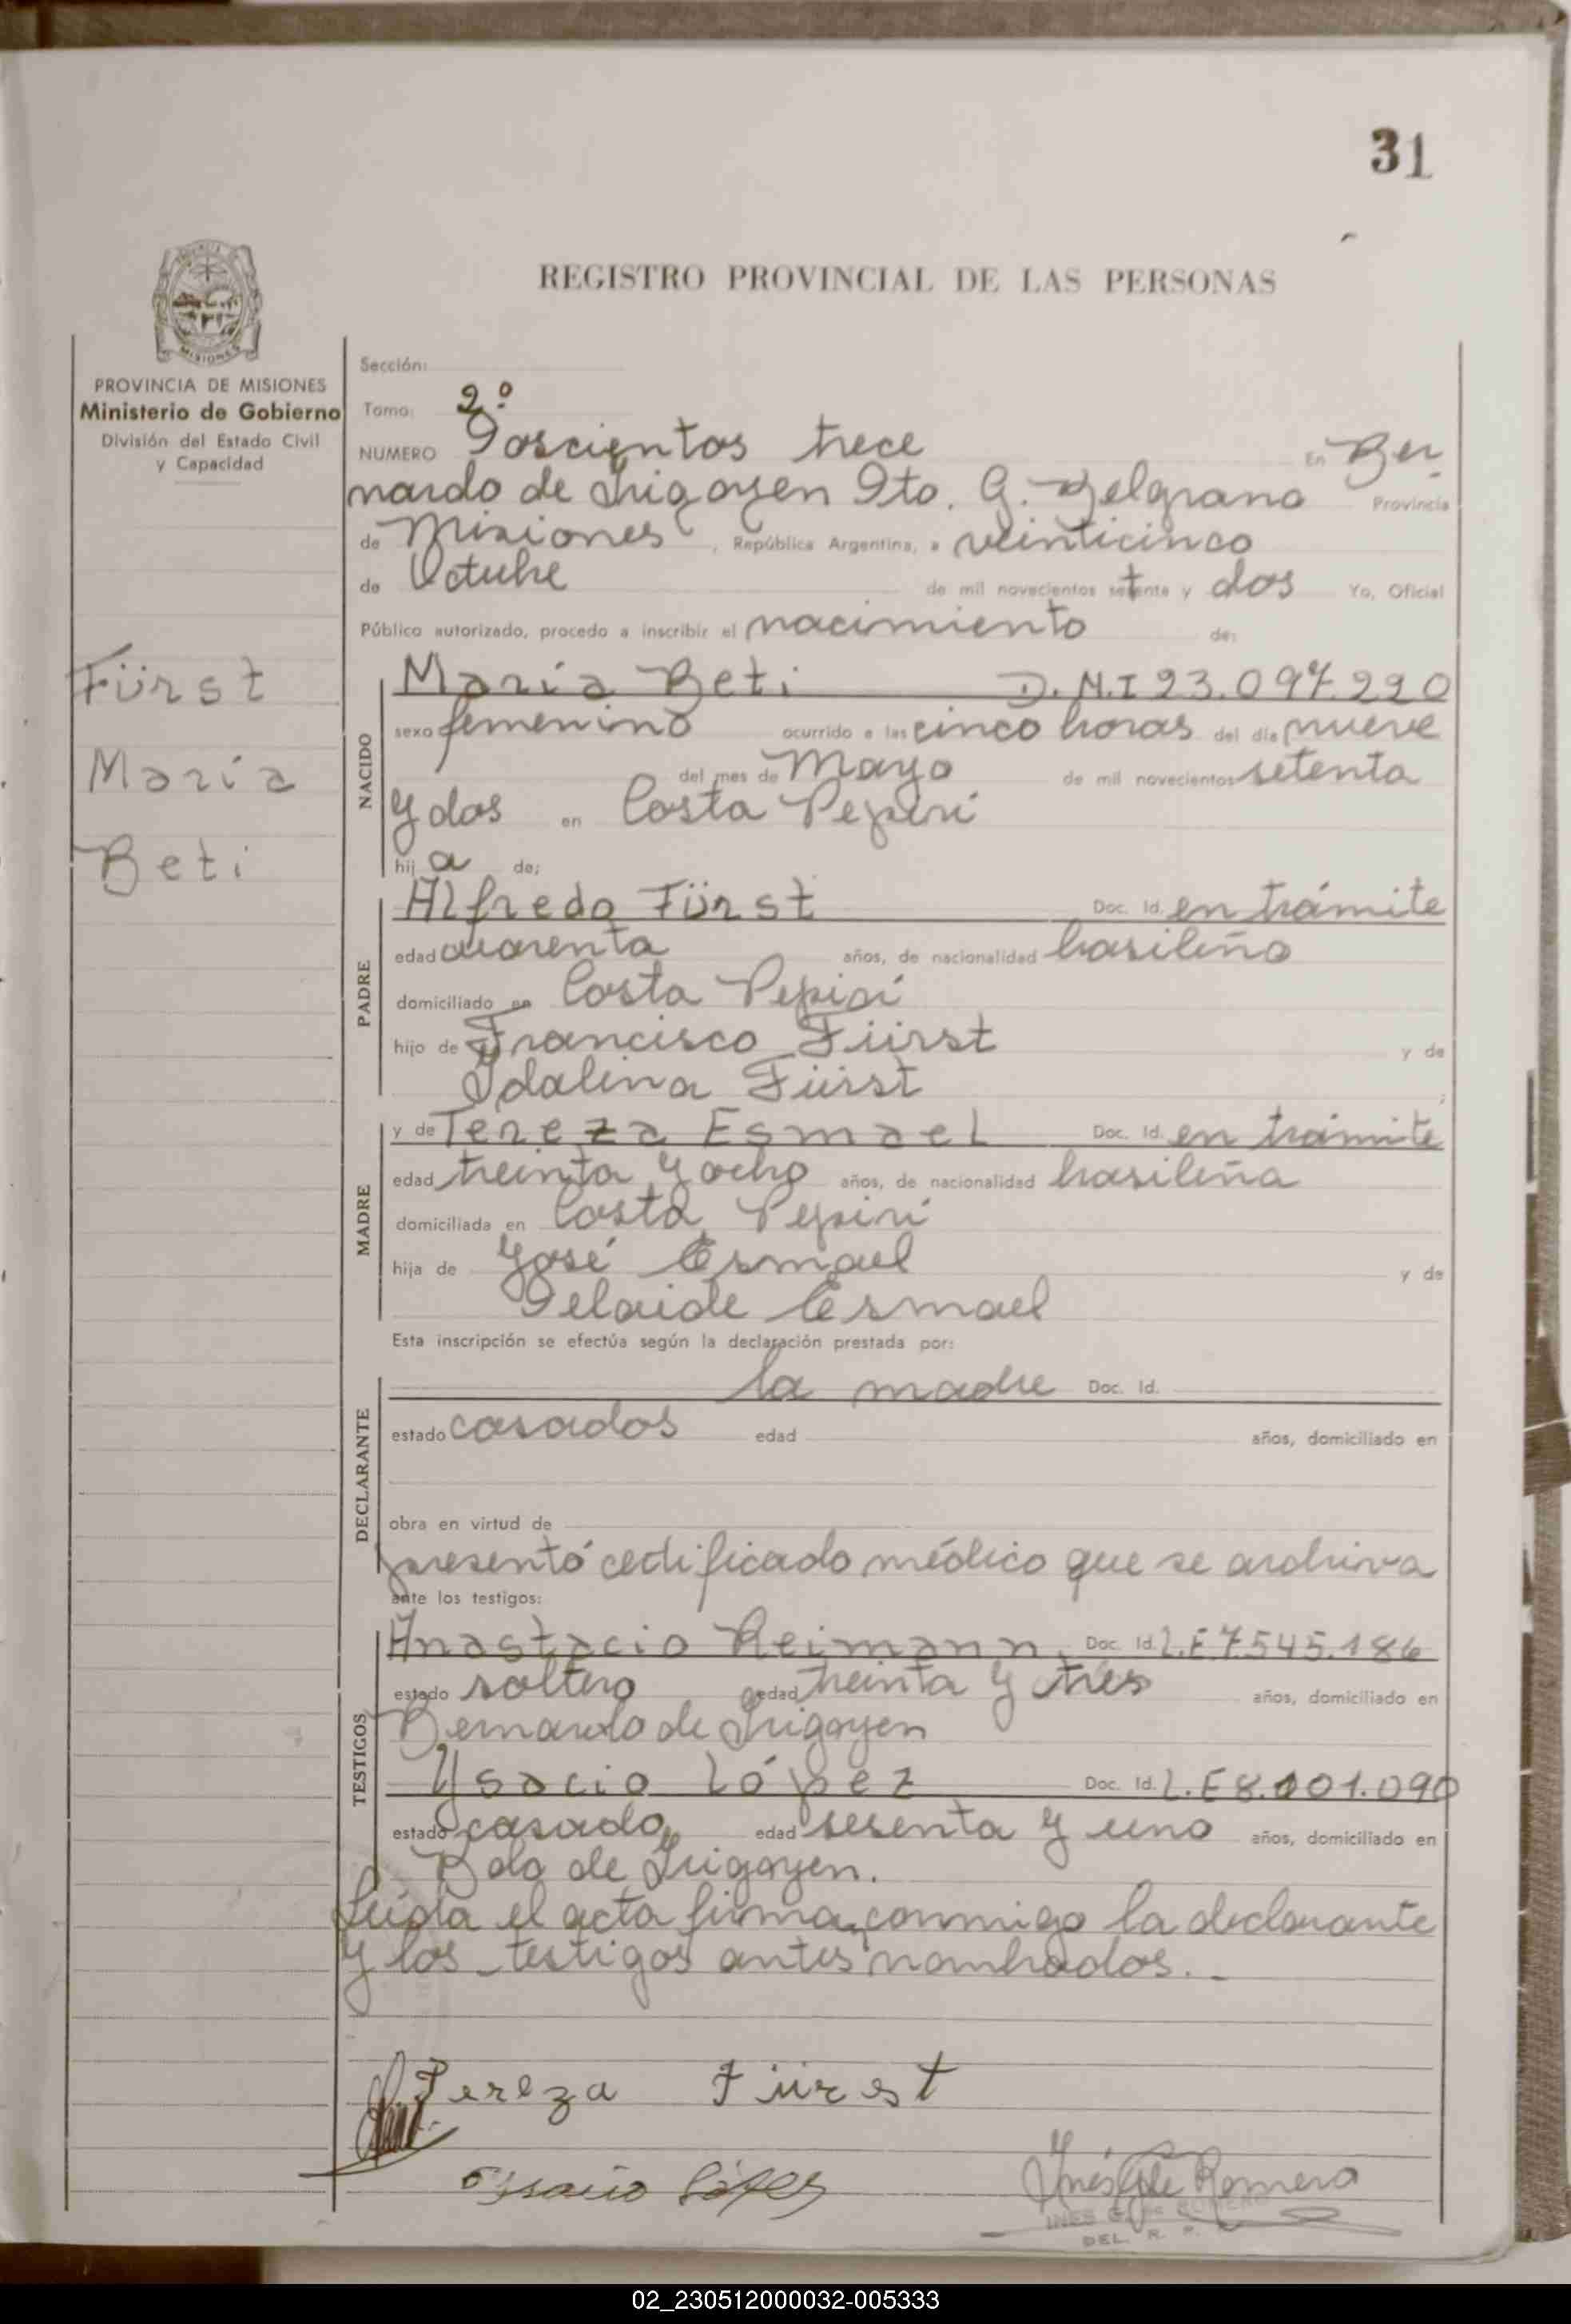 31
REGISTRO PROVINCIAL DE LAS PERSONAS
MISIONES
PROVINCIA DE MISIONES
Ministerio de Gobierno
División del Estado Civil
y Capacidad
Fürst
María
Beti
Sección:
Tomo: 2º
NUMERO Doscientos trece En Ber
nardo de Irigoyen Dto. G. Belgrano Provincia
de Misiones, República Argentina, a veinticinco
de Octubre de mil novecientos setenta y dos Yo, Oficial
Público autorizado, procedo a inscribir el nacimiento de:
NACIDO
María Beti D.N.I 23.097.220
sexo femenino ocurrido a las cinco horas del día nueve
del mes de Mayo de mil novecientos setenta
y dos en Costa Pepirí
hij a de:
PADRE
Alfredo Fürst Doc. Id. en trámite
edad cuarenta años, de nacionalidad brasileño
domiciliado en Costa Pepirí
hijo de Francisco Fürst y de
Idalina Fürst ;
MADRE
y de Tereza Esmael Doc. Id. en trámite
edad treinta y ocho años, de nacionalidad brasileña
domiciliada en Costa Pepirí
hija de José Esmael y de
Delaide Esmael
Esta inscripción se efectúa según la declaración prestada por:
DECLARANTE
la madre Doc. Id.
estado casados edad años, domiciliado en
obra en virtud de
presentó certificado médico que se archiva
ante los testigos:
TESTIGOS
Anastacio Reimann Doc. Id. L.E 7.545.186
estado soltero edad treinta y tres años, domiciliado en
Bernardo de Irigoyen
Ysacio López Doc. Id. L.E 8.001.090
estado casado edad sesenta y uno años, domiciliado en
Bdo de Irigoyen.
Leída el acta firman conmigo la declarante
y los testigos antes nombrados.
Tereza Fürst
López
Inés G. de Romero
INES G. DE ROMERO
DEL. R. P.
02_230512000032-005333